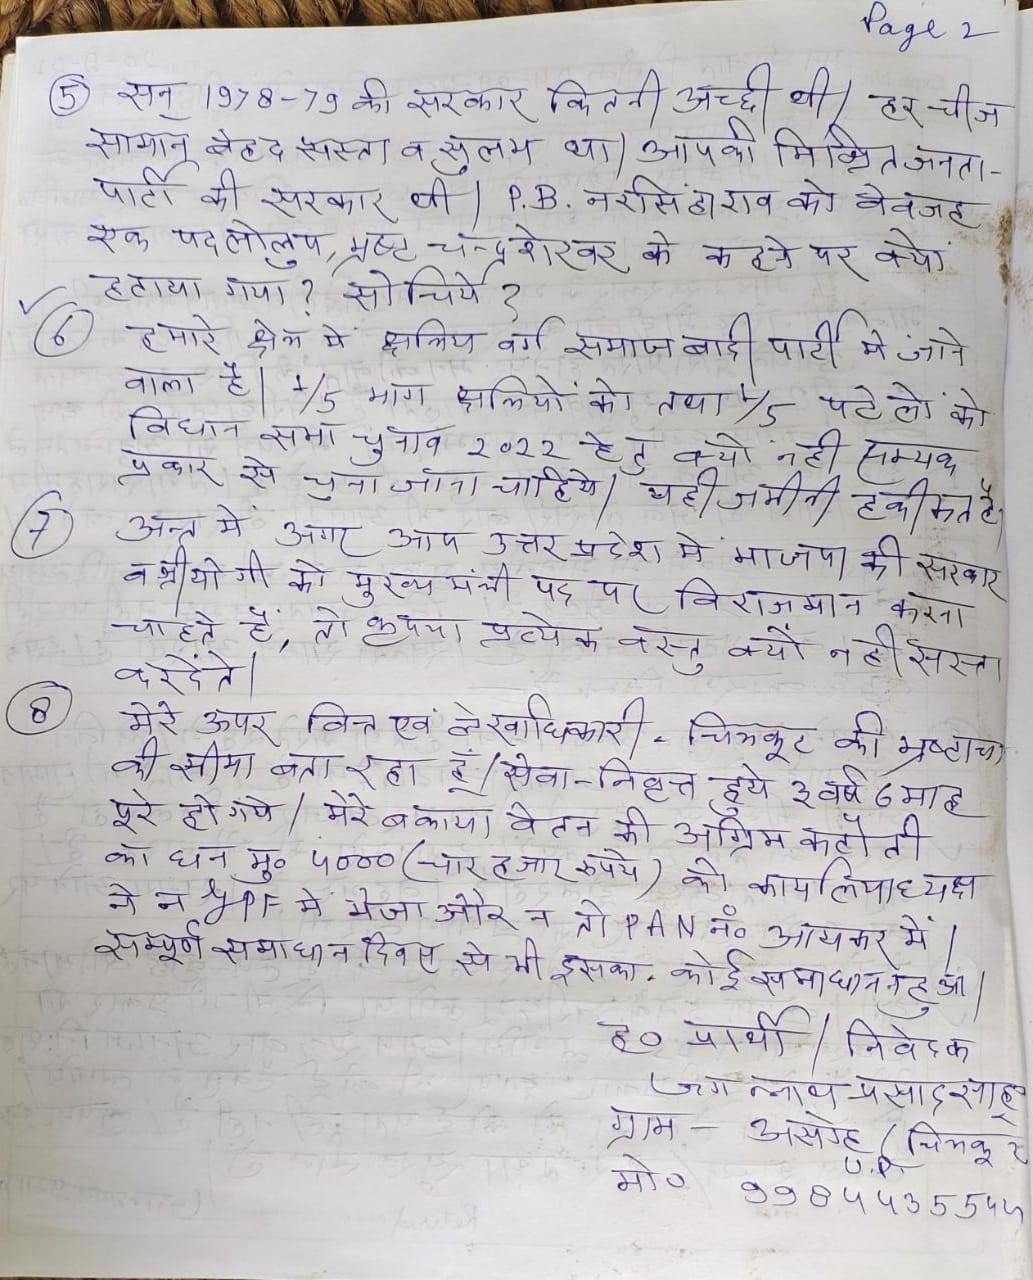 Page 2
⑤ सन् 1978-79 की सरकार कितनी अच्छी थी। हर चीज
सामान् बेहद सस्ता व सुलभ था। आपकी मिश्रित जनता-
पार्टी की सरकार थी। P.B. नरसिंहाराव को बेवजह
एक पदलोलुप, भ्रष्ट चन्द्रशेखर के कहने पर क्यों
हटाया गया? सोचिये?
⑥ हमारे क्षेत्र में क्षत्रिय वर्ग समाजबादी पार्टी में जाने
वाला है। 1/5 भाग क्षत्रियों को तथा 1/5 पटेलों को
विधान सभा चुनाव 2022 हेतु क्यों नहीं सम्यक
प्रकार से चुना जाना चाहिये। यही जमीनी हकीकत है।
⑦ अन्त में अगर आप उत्तर प्रदेश में भाजपा की सरकार
व श्री योगी को मुख्य मंत्री पद पर विराजमान करना
चाहते हैं, तो कृपया प्रत्येक वस्तु क्यों नहीं सस्ता
कर देते।
⑧ मेरे ऊपर वित्त एवं लेखाधिकारी - चित्रकूट की भ्रष्टाचा
की सीमा बता रहा हूँ। सेवा-निवृत्त हुये 3 वर्ष 6 माह
पूरे हो गये। मेरे बकाया वेतन की अग्रिम कटौती
का धन मु० 4000 (चार हजार रुपये) को कार्यालयाध्यक्ष
ने न GPF में भेजा और न तो PAN नं० आयकर में।
सम्पूर्ण समाधान दिवस से भी इसका कोई समाधान न हुआ।
ह० प्रार्थी / निवेदक
जगन्नाथ प्रसाद साहू
ग्राम - असोह (चित्रकूट
U.P.
मो० 9984435544